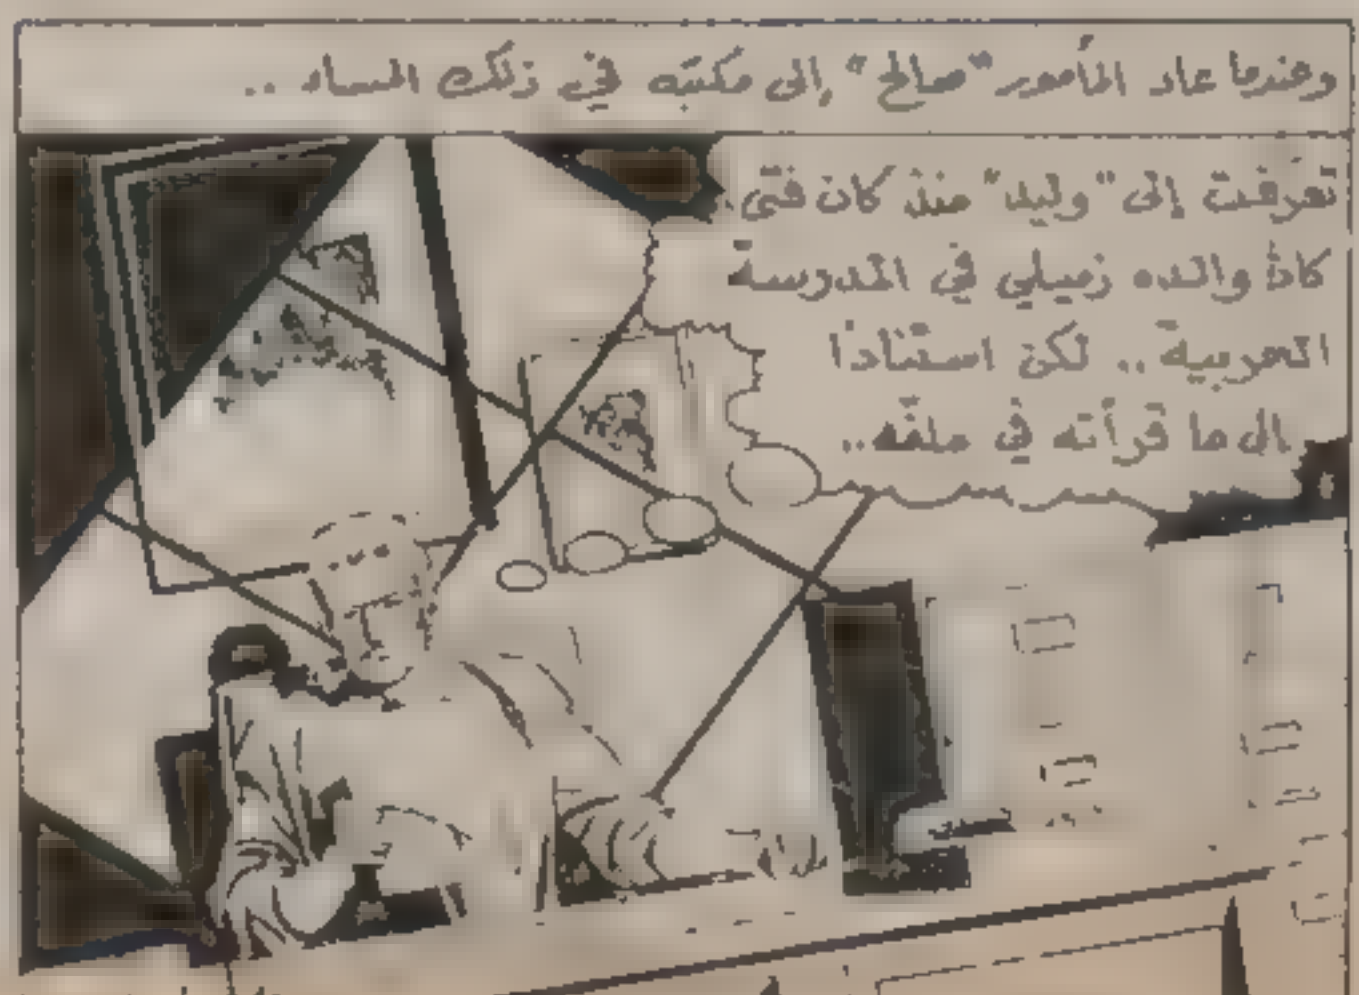 وعندما عاد المأمور "صالح" إلى مكتبه في ذلك المساء ..
تعرفت إلى "وليد" منذ كان فتى
كان والده زميلي في المدرسة
الحربية .. لكن استنادا
إلى ما قرأته في ملفّه..